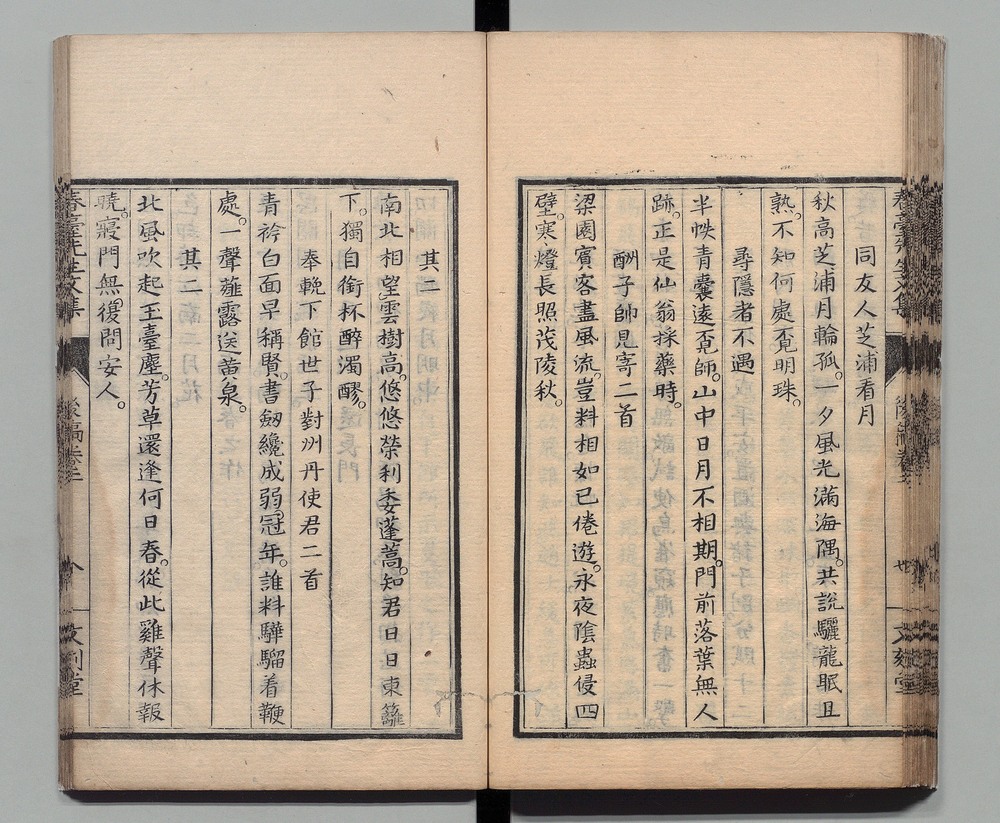 同友人芝浦看月
秋高芝浦月輪孤。一夕風光滿海隅。共說驪龍眠且
熟。不知何處覓明珠。
尋隱者不遇
半帙青囊遠覓師。山中日月不相期。門前落葉無人
跡。正是仙翁採藥時。
酬子師見寄二首
梁園賓客盡風流。豈料相如已倦遊。永夜陰蟲侵四
壁。寒燈長照茂陵秋。
其二
南北相望雲樹高。悠悠榮利委蓬蒿。知君日日東籬
下。獨自銜杯醉濁醪。
奉輓下館世子對州丹使君二首
青衿白面早稱賢。書劒纔成弱冠年。誰料驊騮着鞭
處。一聲薤露送黃泉。
其二
北風吹起玉臺塵。芳草還逢何日春。從此雞聲休報
曉。寢門無復問安人。
春臺先生文集
後稿卷三
八
文刻堂